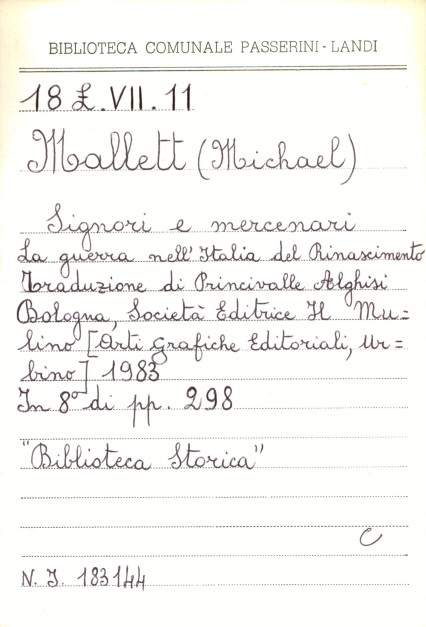 BIBLIOTECA COMUNALE PASSERINI - LANDI
18 L. VII. 11
Mallett (Michael)
Signori e mercenari
La guerra nell'Italia del Rinascimento
Traduzione di Principalle Alghisi
Bologna, Società Editrice Il Mu=
lino [Arti Grafiche Editoriali, Ur=
bino] 1983
In 8º di pp. 298
"Biblioteca Storica"
C
N. I. 183144